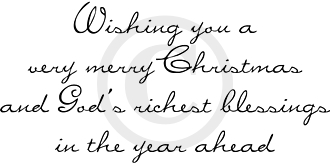 Wishing you a
very merry Christmas
and God's richest blessings
in the year ahead